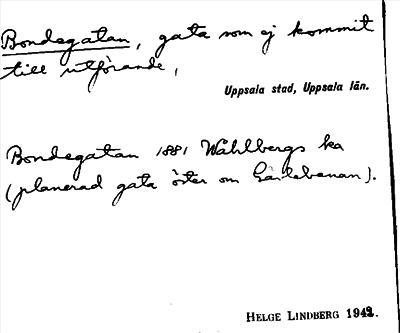 Bondegatan, gata som ej kommit
till utförande,
Uppsala stad, Uppsala län.
Bondegatan 1881 Wahlbergs ka
(planerad gata öster om Gävlebanan).
HELGE LINDBERG 1942.